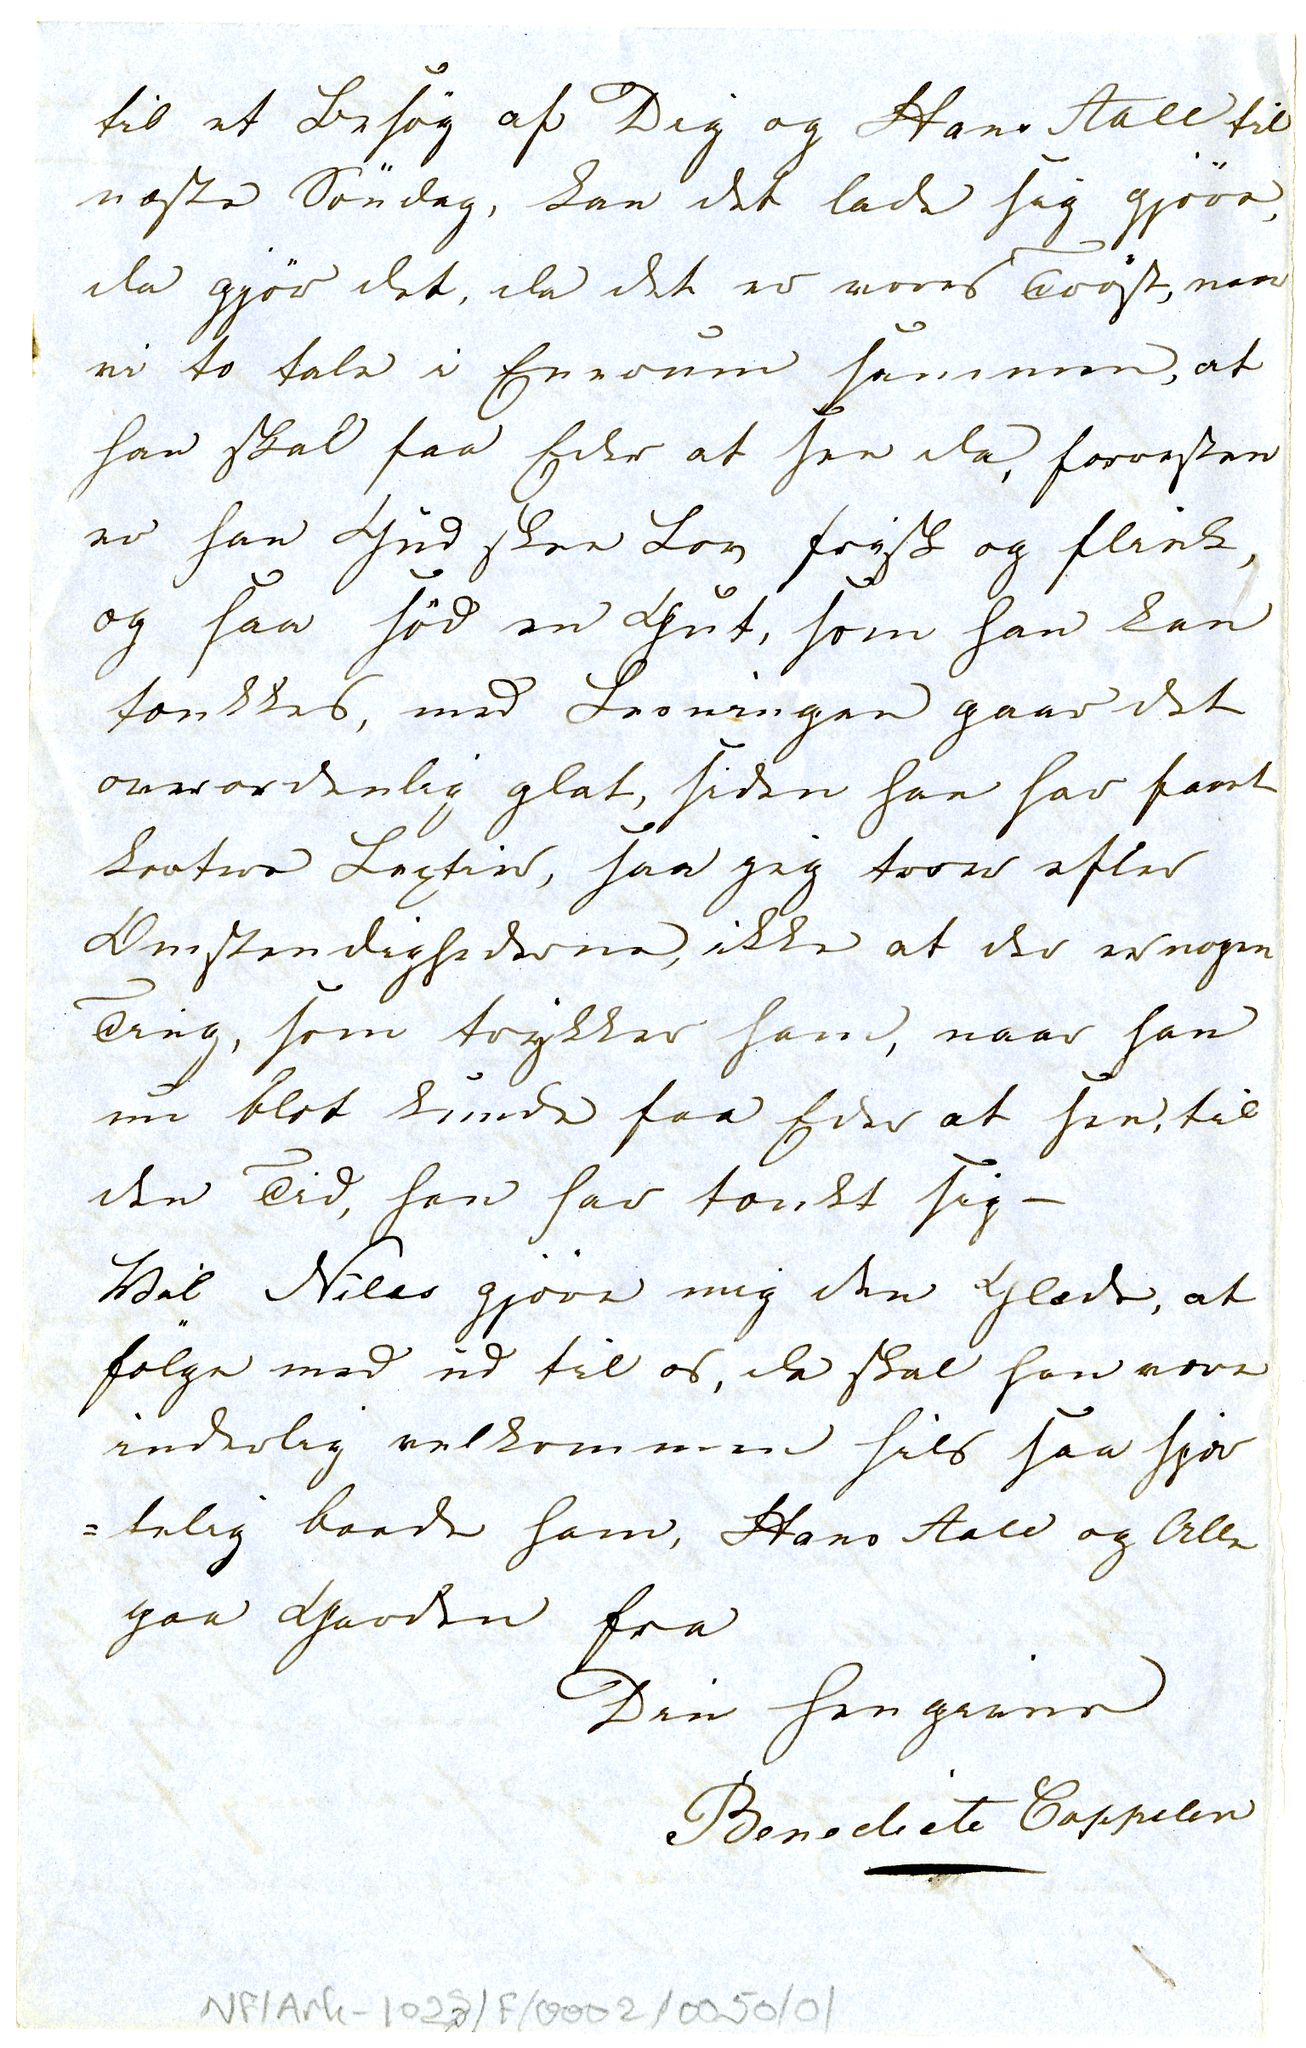 til et Besög af Dig og Hans Aall til
næste Söndag, kan det lade sig gjöre,
da gjör det, da det er vores Tröst, naar
vi to tale i Eenrum sammen, at
han skal faa Eder at see da, forresten
er han Gud skee Lov frisk og flink,
og saa söd en Gut, som han kan
tænkkes, med Læsningen gaar det
overordenlig glat, siden han har faaet
kortere Lexier, saa jeg troer efter
Omstændighederne, ikke at der er nogen
Ting, som trykker ham, naar han
nu blot kunde faa Eder at see, til
den Tid, han har tænkt sig —
Vil Nilas gjöre mig den Glæde, at
fölge med ud til os, da skal han være
inderlig velkommen hils saa hjer
=telig baade ham, Hans Aall og Alle
paa Gaarden fra
Din hengivne
Benedicte Cappelen
NF/Ark-1023/F/0002/0050/01